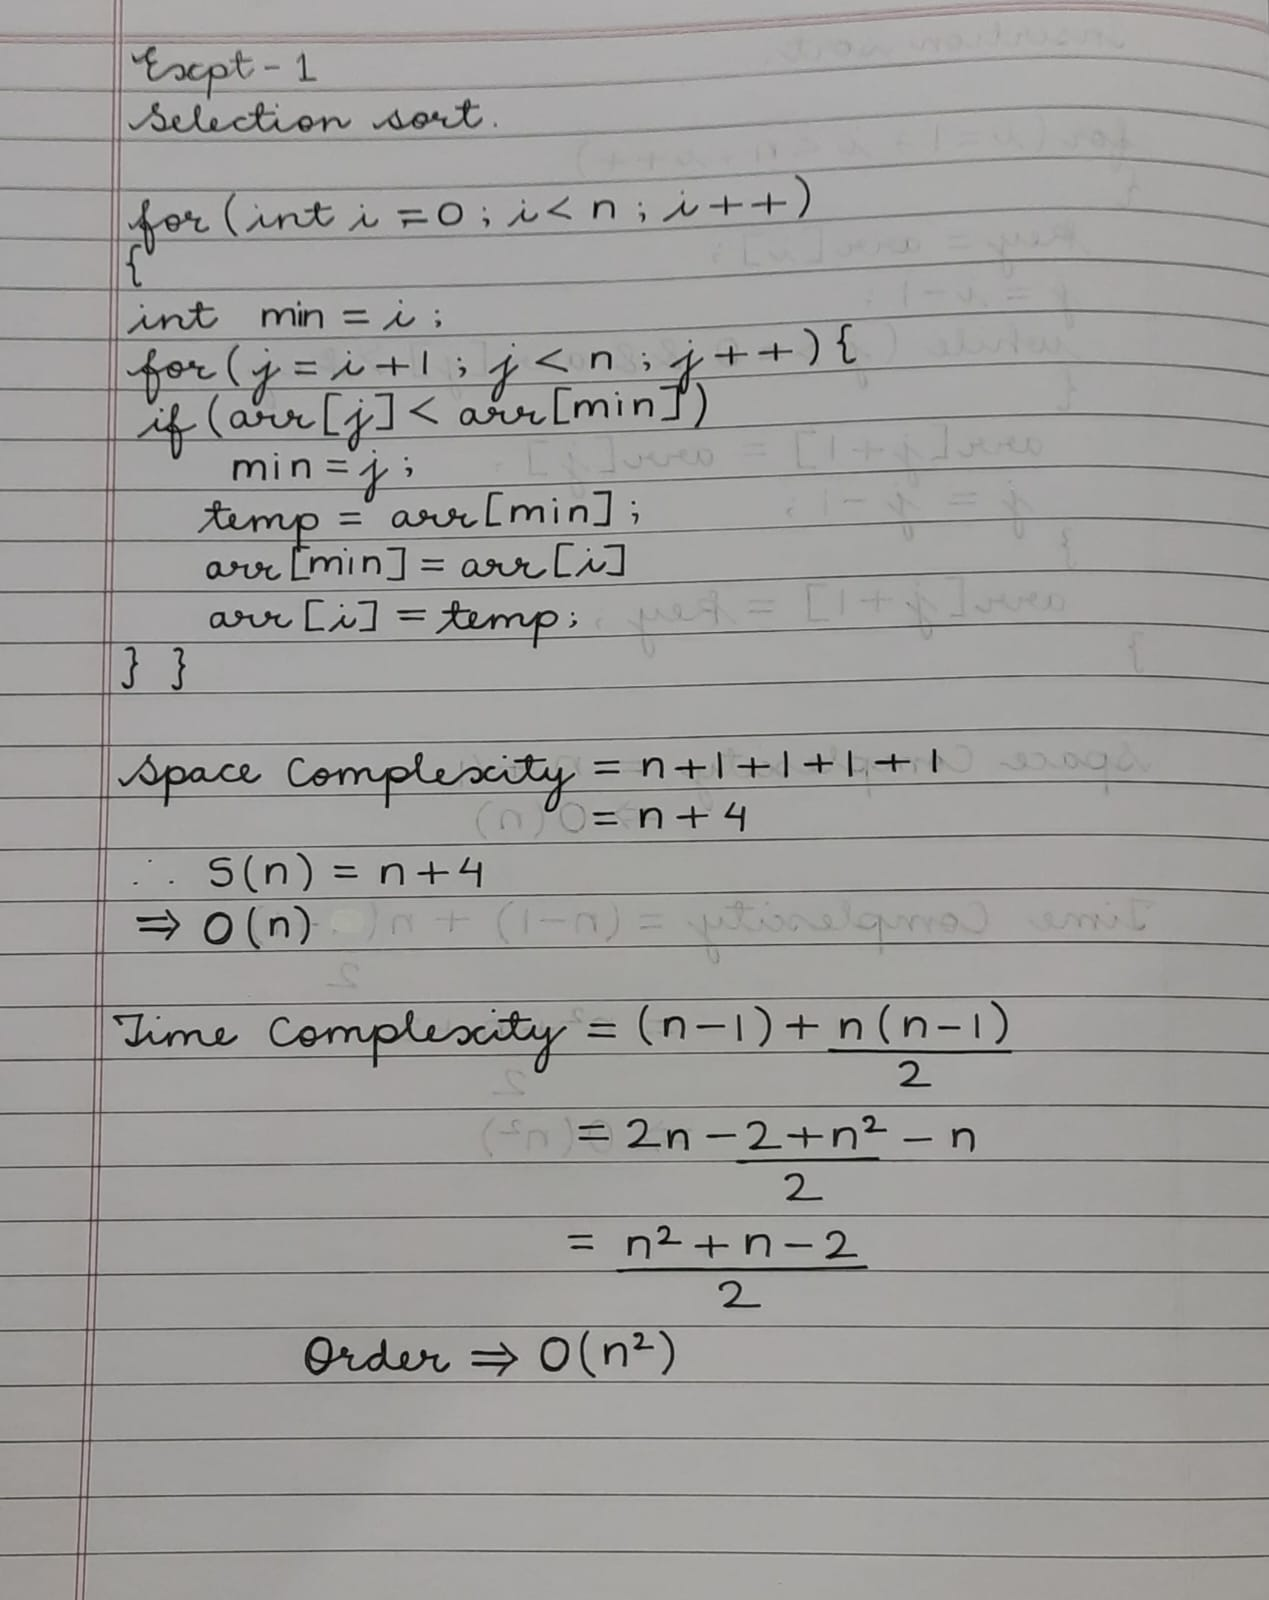 Expt-1
Selection sort.
for(int i=0; i<n; i++)
{
int min = i;
for(j=i+1; j<n; j++){
if(arr[j]< arr[min])
min=j;
temp = arr[min];
arr[min]=arr[i]
arr[i]=temp;
} }
Space Complexity = n+1+1+1+1
= n+4
∴ S(n) = n+4
⇒ O(n)
Time Complexity = (n-1)+n(n-1)
2
= 2n-2+n²-n
2
= n²+n-2
2
Order ⇒ O(n²)